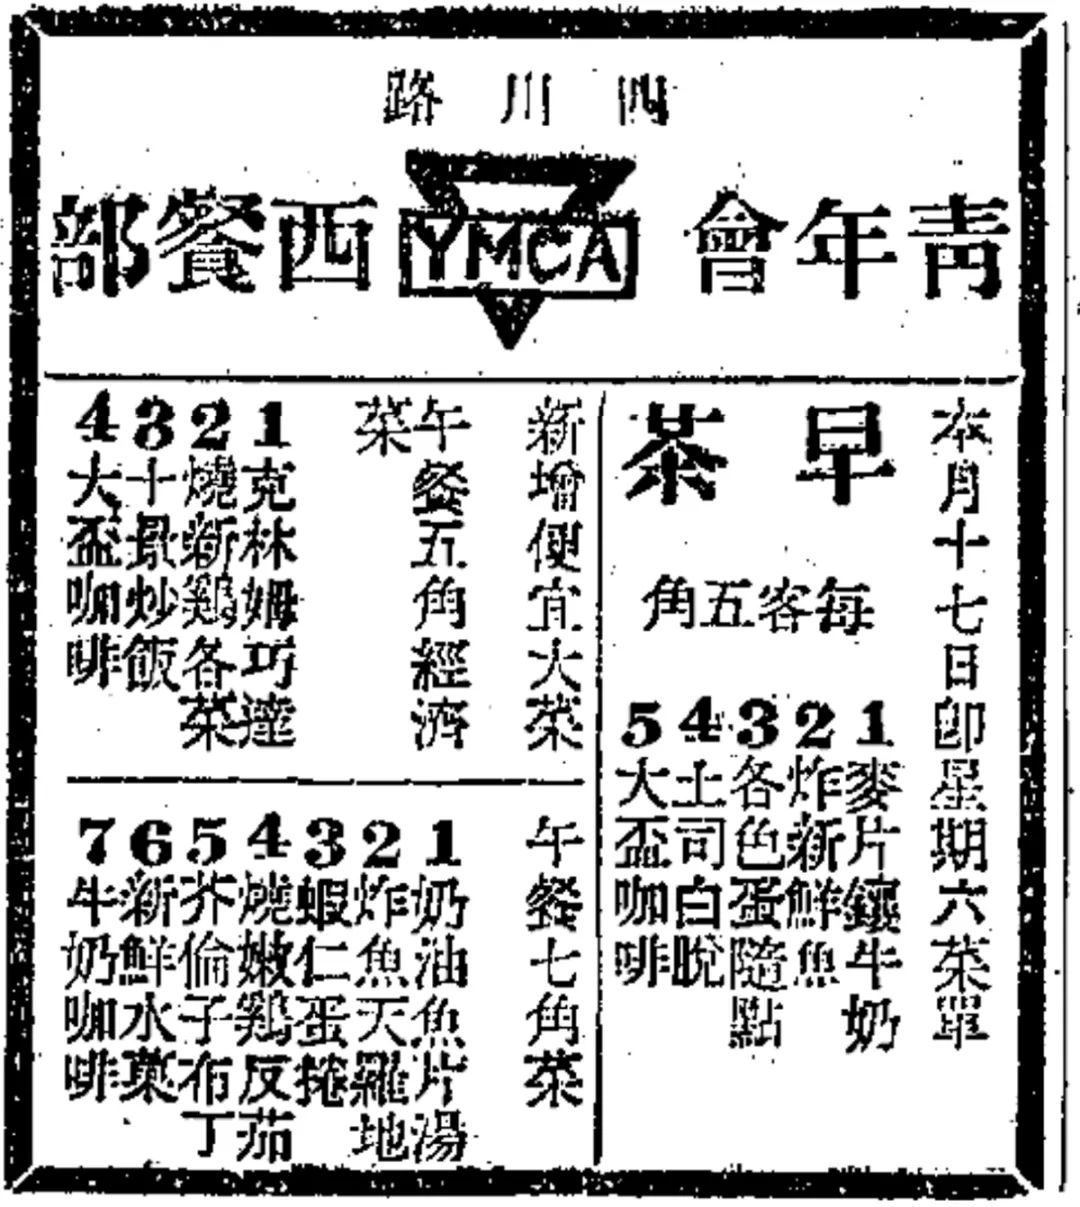 四川路
青年會
YMCA
西餐部
本月十七日即星期六菜單
早茶
每客五角
1麥片鑲牛奶
2炸新鮮魚
3各色蛋隨點
4土司白脫
5大盃咖啡
新增便宜大菜
午餐五角經濟
菜
1克林姆巧達
2燒新鷄各菜
3十景炒飯
4大盃咖啡
午餐七角菜
1奶油魚片湯
2炸魚天羅地
3蝦仁蛋捲
4燒嫩鷄反茄
5芥倫子布丁
6新鮮水菓
7牛奶咖啡